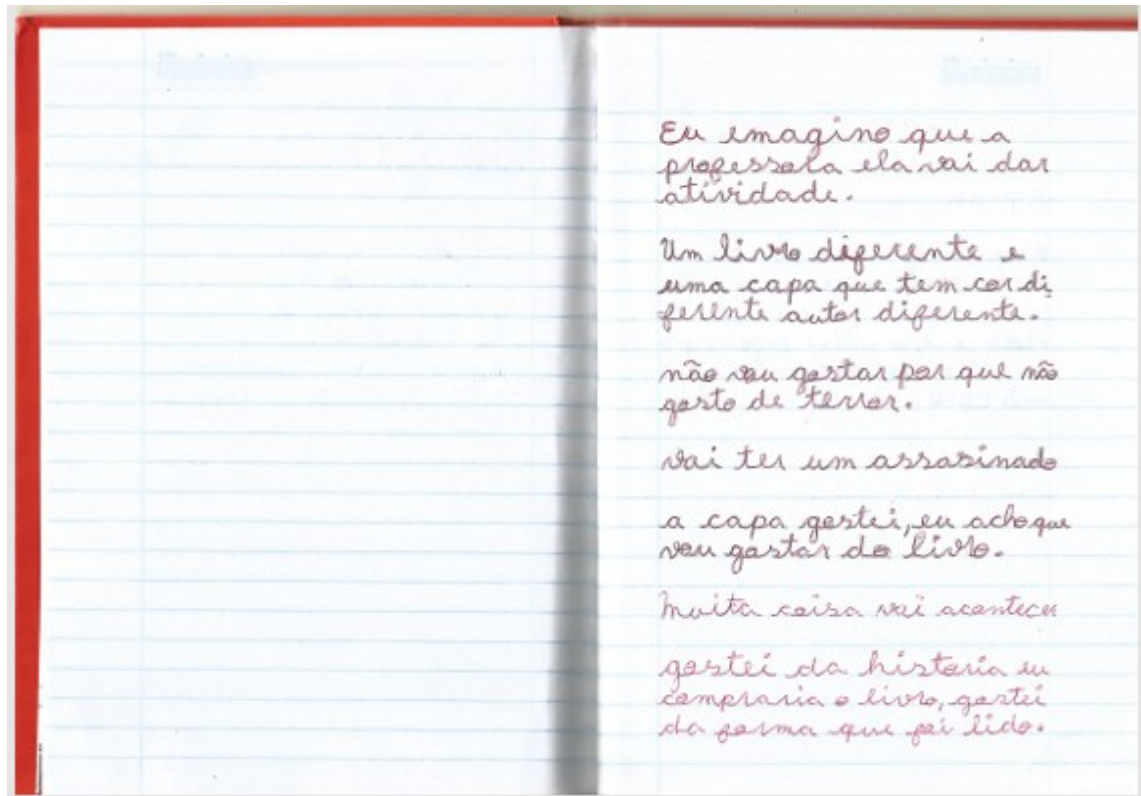 Eu emagino que a
professora ela vai dar
atividade.
Um livro diferente e
uma capa que tem cor di
ferente autor diferente.
não vou gostar por que não
gosto de terror.
vai ter um assasinado
a capa gostei, eu acho que
vou gostar do livro.
Muita coisa vai acontecer
gostei da historia eu
compraria o livro, gostei
da forma que foi lido.